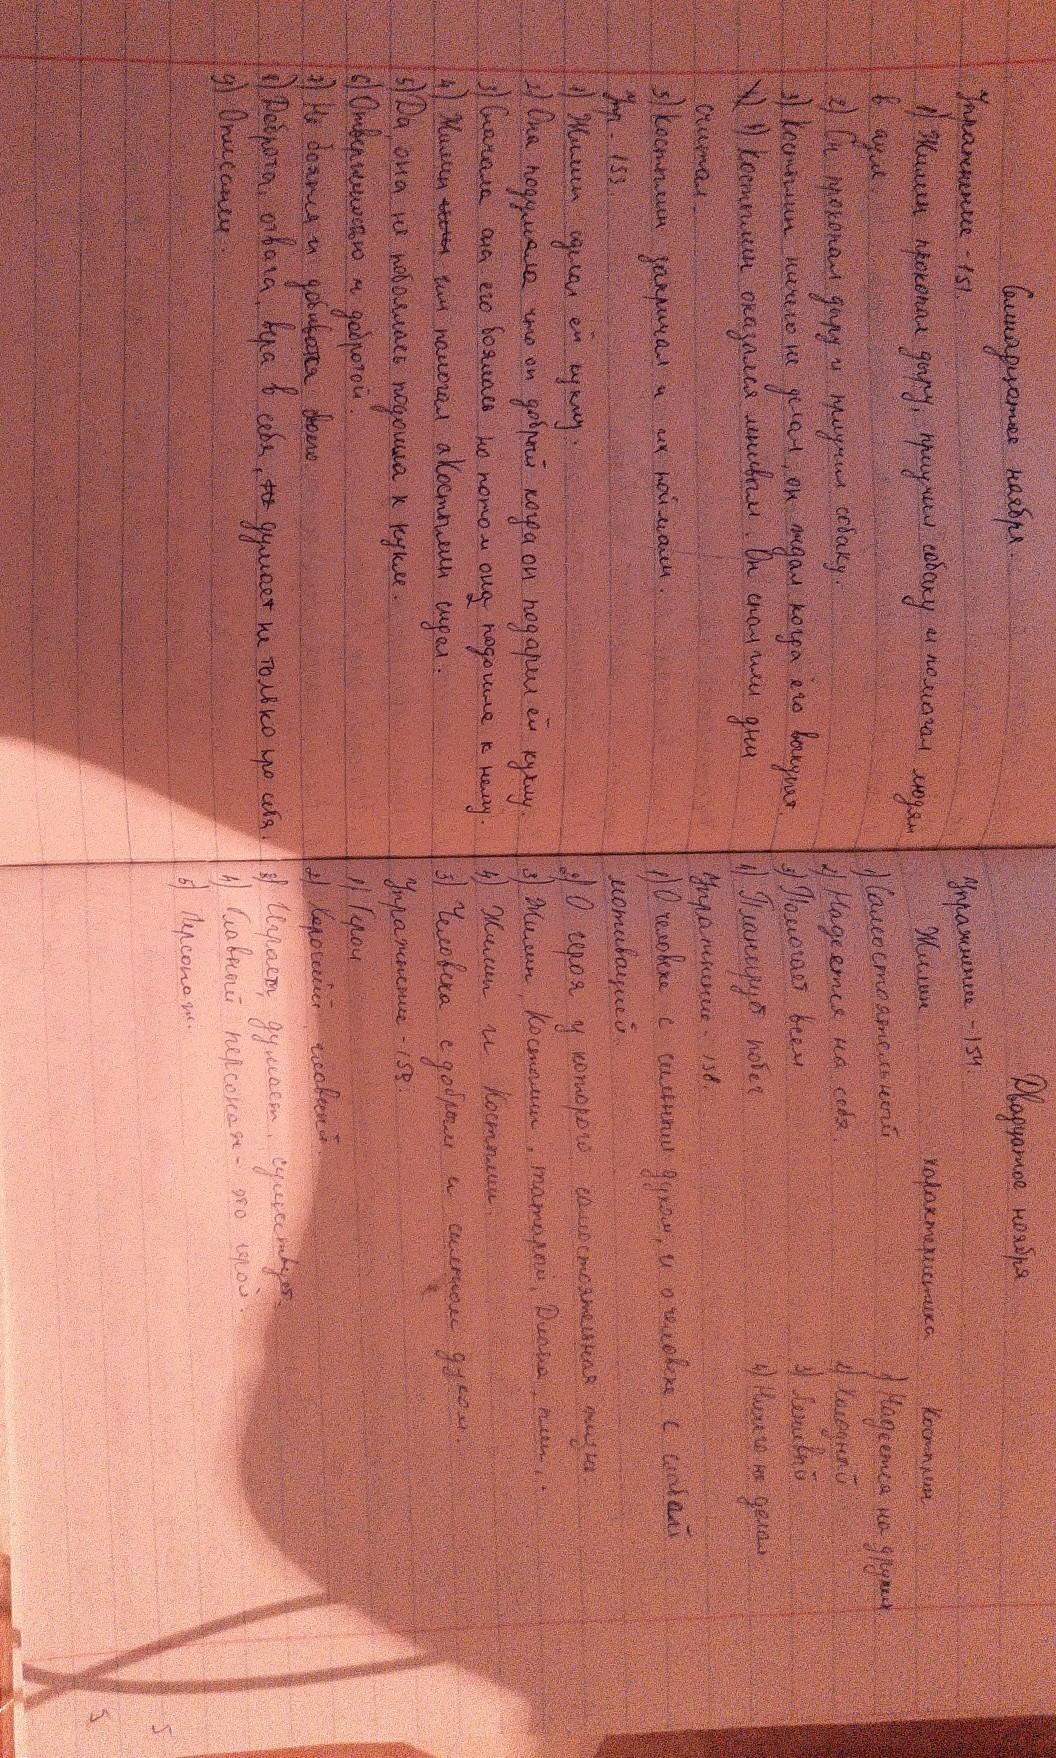 Семнадцатое ноября.
Упражнение - 151.
1) Жилин прокопал дыру, приучил собаку и помогал людям
в ауле
2) Он прокопал дыру и приучил собаку.
3) Костылин ничего не делал, он ждал когда его выкупят.
4) Костылин оказался ленивым. Он спал или дни
считал.
5) Костылин закричал и их поймали.
Уп - 153
1) Жилин сделал ей куклу.
2) Она подумала что он добрый когда он подарил ей куклу.
3) Сначала она его боялась но потом она подошла к нему.
4) Жилин им помогал а Костылин спал.
5) Да, она не побоялась подошла к кукле.
6) Отзывчивостью и добротой.
7) Не боятся и добиватся всего
8) Доброта, отвага, вера в себя, думает не только про себя.
9) Описание.
Двадцатое ноября
Упражнение - 154.
Жилин характеристика Костылин
1) Самостоятельный 1) Надеется на других
2) Надеется на себя. 2) Холодной
3) Помогает всем 3) Ленивый
4) Планирует побег 4) Ничего не делал
Упражнение - 156.
1) О человеке с сильным духом, и о человеке с слабой
мотивацией.
2) О героя у которого самостоятельная жизнь
3) Жилин, Костылин, татарой, Диана,
4) Жилин и Костылин.
5) Человека с добрым и сильном духом.
Упражнение - 158.
1) Герой
2) Хороший, главный.
3) Играет, думает, существует.
4) Главный персонаж - это герой.
5) Персонаж.